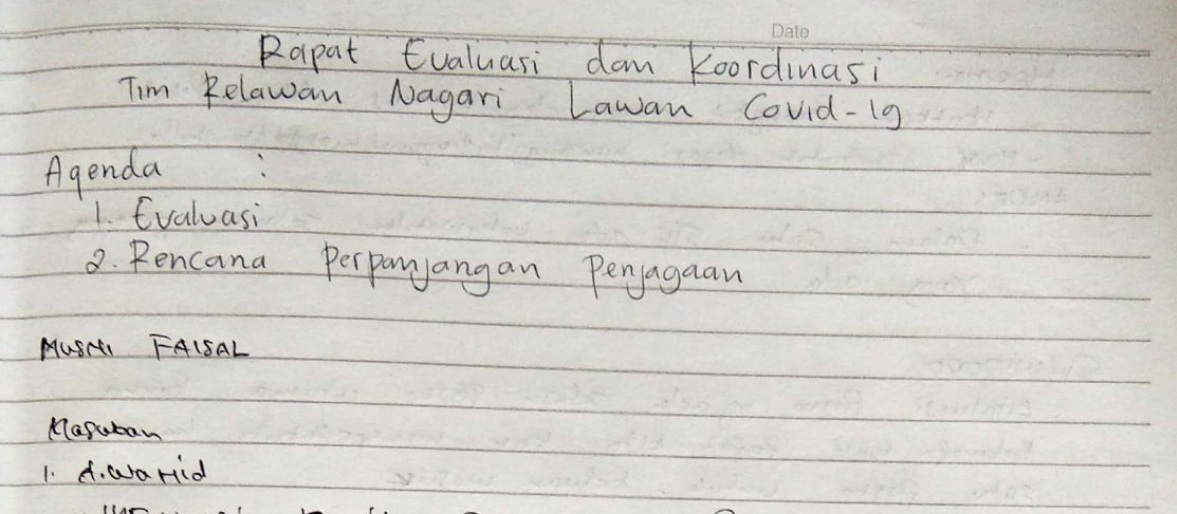 Date
Rapat Evaluasi dan Koordinasi
Tim Relawan Nagari Lawan Covid-19
Agenda :
1. Evaluasi
2. Rencana Perpanjangan Penjagaan
MUSMI FAISAL
Masukan
1. A. Wahid